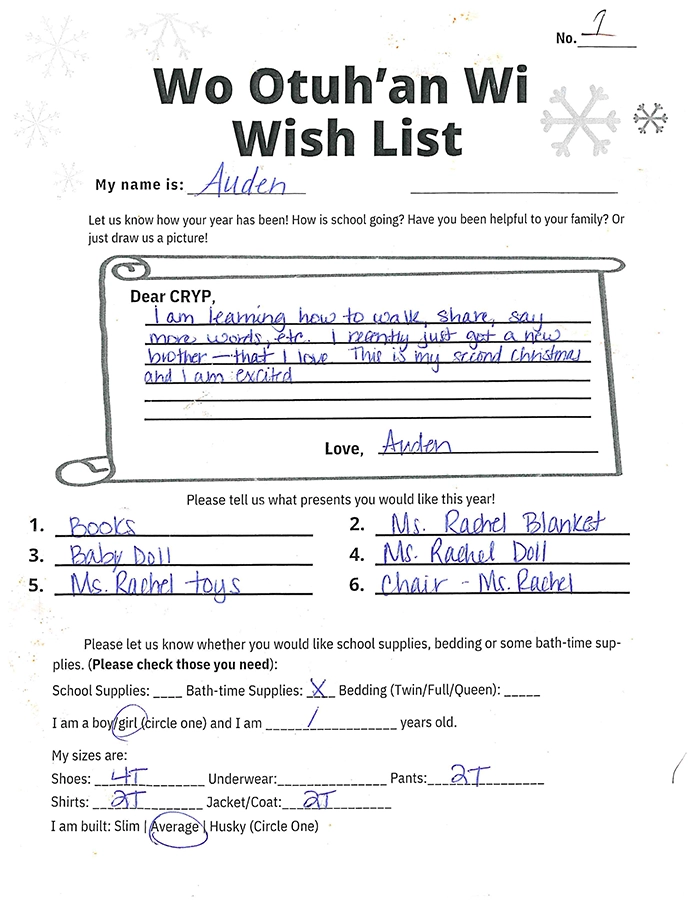 No. 1
Wo Otuh'an Wi
Wish List
My name is: Auden
Let us know how your year has been! How is school going? Have you been helpful to your family? Or
just draw us a picture!
Dear CRYP,
I am learning how to walk, share, say
more words, etc. I recently just got a new
brother — that I love. This is my second christmas
and I am excited
Love, Auden
Please tell us what presents you would like this year!
1. Books 2. Ms. Rachel Blanket
3. Baby Doll 4. Ms. Rachel Doll
5. Ms. Rachel toys 6. Chair - Ms. Rachel
Please let us know whether you would like school supplies, bedding or some bath-time sup-
plies. (Please check those you need):
School Supplies: ____ Bath-time Supplies: X Bedding (Twin/Full/Queen): _____
I am a boy/girl (circle one) and I am 1 years old.
My sizes are:
Shoes: 4T Underwear: ______________ Pants: 2T
Shirts: 2T Jacket/Coat: 2T
I am built: Slim | Average | Husky (Circle One)